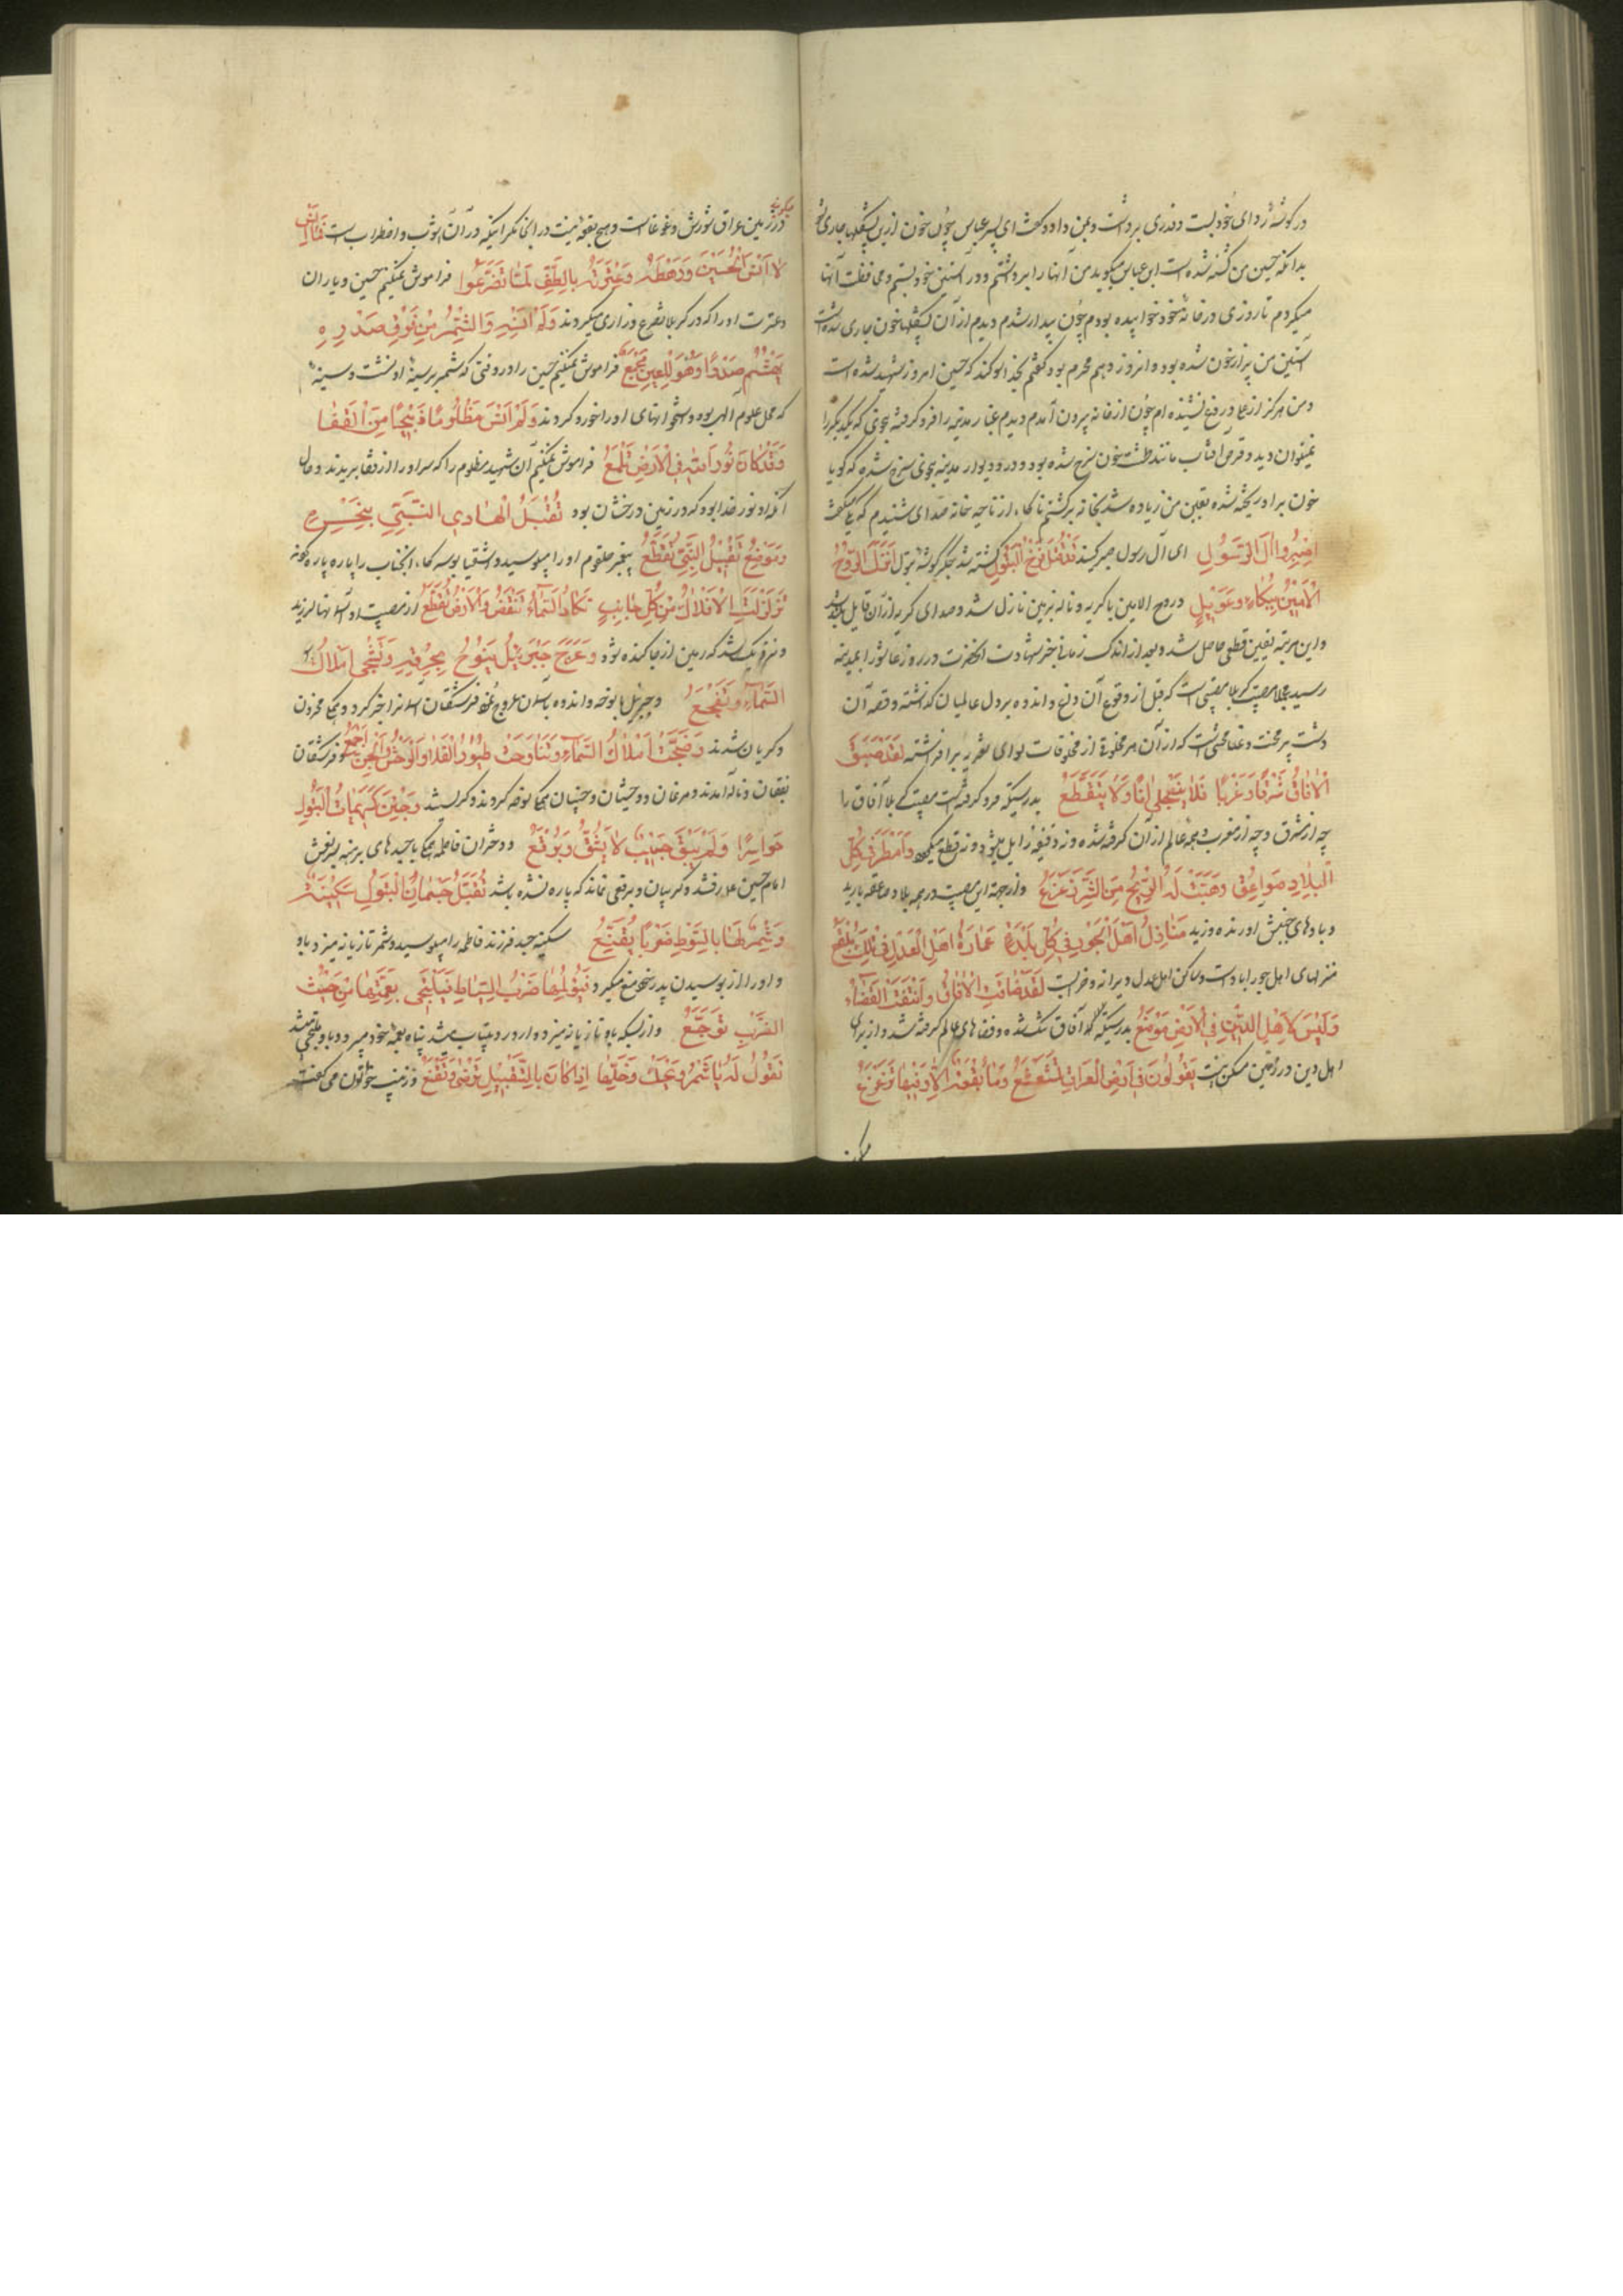 در گوشهٔ ردای خود بست و قدری برداشت و بمن داد و گفت ای پسر عباس چون خون ازین پشکلها جاری شود
بدانکه حسین من کشته شده است ابن عباس میگوید من آنها را برداشتم و در آستین خود بستم و محافظت آنها
میکردم تا روزی در خانهٔ خود خوابیده بودم چون بیدار شدم دیدم از آن پشکلها خون جاری شده است
آستین من پر از خون شده بود و انروز دهم محرم بود گفتم بخدا سوگند که حسین امروز شهید شده است
و من هرگز از علی دروغ نشنیده ام چون از خانه بیرون آمدم دیدم غبار مدینه را فرو گرفته بنحوی که یکدیگر را
نمیتوان دید و قرص آفتاب مانند طشت خون سرخ شده بود و در و دیوار مدینه بنحوی سرخ شده که گویا
خون بر او ریخته شده یقین من زیاده شد بخانه برگشتم ناگاه از ناحیه خانه صدای شنیدم که میگفت
اِصْبِرُوا آلَ الرَّسُولِ ای آل رسول صبر کنید قُتِلَ فَرْخُ الْبَتُولِ کشته شد جگرگوشهٔ بتول نَزَلَ الرُّوحُ
الْاَمِینُ بِبُکَاءٍ وَ عَوِیلٍ و روح الامین با گریه و ناله بزمین نازل شد و صدای گریه از آن قایل بلند شد
و این مرتبه یقین قطعی حاصل شد و بعد از اندک زمانی خبر شهادت آنحضرت در روز عاشورا بمدینه
رسید مجملا مصیبت کربلا مصیبتی است که قبل از وقوع آن رنج و اندوه بر دل عالمیان گذاشته و قصه آن
دشت پر محنت و عنا محنتی است که از آن هر مخلوق از مخلوقات لوای تعزیه بر افراشته لَقَدْ ضَیَّقَ
الْآفَاقَ شَرْقًا وَ غَرْبًا فَلَا یَنْجَلِی آنًا وَلَا یَتَقَطَّعُ بدرستیکه فرو گرفته است مصیبت کربلا آفاق را
چه از مشرق و چه از مغرب و همه عالم از آن گرفته شده و نه دقیقه زایل میشود و نه قطع میگردد وَ اَمْطَرَتْ کُلَّ
الْبِلَادِ صَوَاعِقُ وَ هَبَّتْ لَهُ الرِّیحُ مِنَ الشَّرِّ زَعْزَعُ و از جهة این مصیبت در همه بلاد صاعقه بارید
و بادهای جنبش آورنده وزید مَنَازِلُ اَهْلِ الْجَوْرِ فِی کُلِّ بَلْدَةٍ عِمَارَةُ اَهْلِ الْعَدْلِ فِی تِلْکَ بَلْقَعٌ
منزلهای اهل جور آباد است و مساکن اهل عدل ویرانه و خرابست لَقَدْ ضَاقَتِ الْآفَاقُ وَ انْتَفَتِ الْقَضَاءُ
وَلَیْسَ لِاَهْلِ الدِّینِ فِی الْاَرْضِ مَوْضِعٌ بدرستیکه آفاق تنگ شده و فضاهای عالم گرفته شد و از برای
اهل دین در زمین مسکن نیست یَقُولُونَ فِی اَرْضِ الْعِرَاقِ مُشَعْشَعٌ وَمَا بُقْعَةٌ اِلَّا وَ فِیهَا تَزَعْزُعٌ
میگویند
در زمین عراق شورش و غوغاست و هیچ بقعه نیست در اینجا مگر اینکه در آن آشوب و اضطراب است فَمَا اَنْسَ
لَا اَنْسَ الْحُسَیْنَ وَ رَهْطَهُ وَ عِتْرَتَهُ بِالطَّفِّ لَمَّا تَضَرَّعُوا فراموش نمیکنم حسین و یاران
و عترت او را که در کربلا تضرع و زاری میکردند وَلَمْ اَنْسَهُ وَالشِّمْرُ مِنْ فَوْقِ صَدْرِهِ
یُهَشِّمُ صَدْرًا وَ هُوَ لِلْعِلْمِ مَجْمَعٌ فراموش نمیکنم حسین را در وقتی که شمر بر سینهٔ او نشست و سینهٔ
که محل علوم الهی بود و استخوانهای او را خورد کردند وَلَمْ اَنْسَ مَظْلُومًا ذَبِیحًا مِنَ الْقَفَا
وَقَدْ کَانَ نُورُ اللهِ فِی الْاَرْضِ تَلْمَعُ فراموش نمیکنم آن شهید مظلوم را که سر او را از قفا بریدند و حال
آنکه او نور خدا بود که در زمین درخشان بود تُقْبِلُ الْهَادِی النَّبِیِّ بِنَحْرِهِ
وَ مَوْضِعُ تَقْبِیلِ النَّبِیِّ تُقَطَّعُ پیغمبر حلقوم او را میبوسید و اشقیا بوسه گاه آنجناب را پاره پاره کردند
تَزَلْزَلَتِ الْاَفْلَاکُ مِنْ کُلِّ جَانِبٍ تَکَادُ السَّمَاءُ تَنْقَضُّ وَالْاَرْضُ تُقَطَّعُ از مصیبت او آسمانها لرزید
و نزدیک شد که زمین از جا کنده شود وَ عَرَجَ جَبْرَئِیلُ یَنُوحُ بِحُرْقَةٍ وَ تَبْکِی اَمْلَاکُ
السَّمَاءِ وَ تَفْجَعُ و جبرئیل با نوحه و اندوه بآسمان عروج نموده فرشتگان آسمانرا خبر کرد و همگی محزون
و گریان شدند وَ ضَجَّتْ اَمْلَاکُ السَّمَاءِ وَ تَنَاوَحَتْ طُیُورُ الْفَلَا وَالْوَحْشُ وَالْجِنُّ اَجْمَعُ و فرشتگان
بفغان و ناله آمدند و مرغان و وحشیان و جنیان همگی نوحه کردند و گریستند وَ جِئْنَ کَرِیمَاتُ الْبَتُولِ
حَوَاسِرًا وَلَمْ یَبْقَ جَیْبٌ لَا یُشَقُّ وَ بُرْقُعٌ و دختران فاطمه همگی با جیدهای برهنه بر نعش
امام حسین علیه رفتند و گریبان و برقعی نماند که پاره نشده باشد تُقَبِّلُ جُثْمَانَ الْبَتُولِ سَکِینَةُ
وَ شِمْرٌ لَهَا بِالسَّوْطِ ضَرْبًا یُقَنِّعُ سکینه جسد فرزند فاطمه را میبوسید و شمر تازیانه میزد باو
و او را از بوسیدن پدر خود منع میکرد فَیُؤْلِمُهَا ضَرْبُ السِّیَاطِ فَتَلْتَجِی بِعَمَّتِهَا مِنْ حَیْثُ
الضَّرْبِ تُوجَعُ و از بسکه باو تازیانه میزد و او را درد بیتاب میشد پناه بعمه خود میبرد و باو ملتجی میشد
تَقُولُ لَهُ یَا شِمْرُ وَیْحَکَ خَلِّهَا اِذَا کَانَ بِالتَّقْبِیلِ تَرْضَی وَ تَقْنَعُ و زینب خواتون می گفت